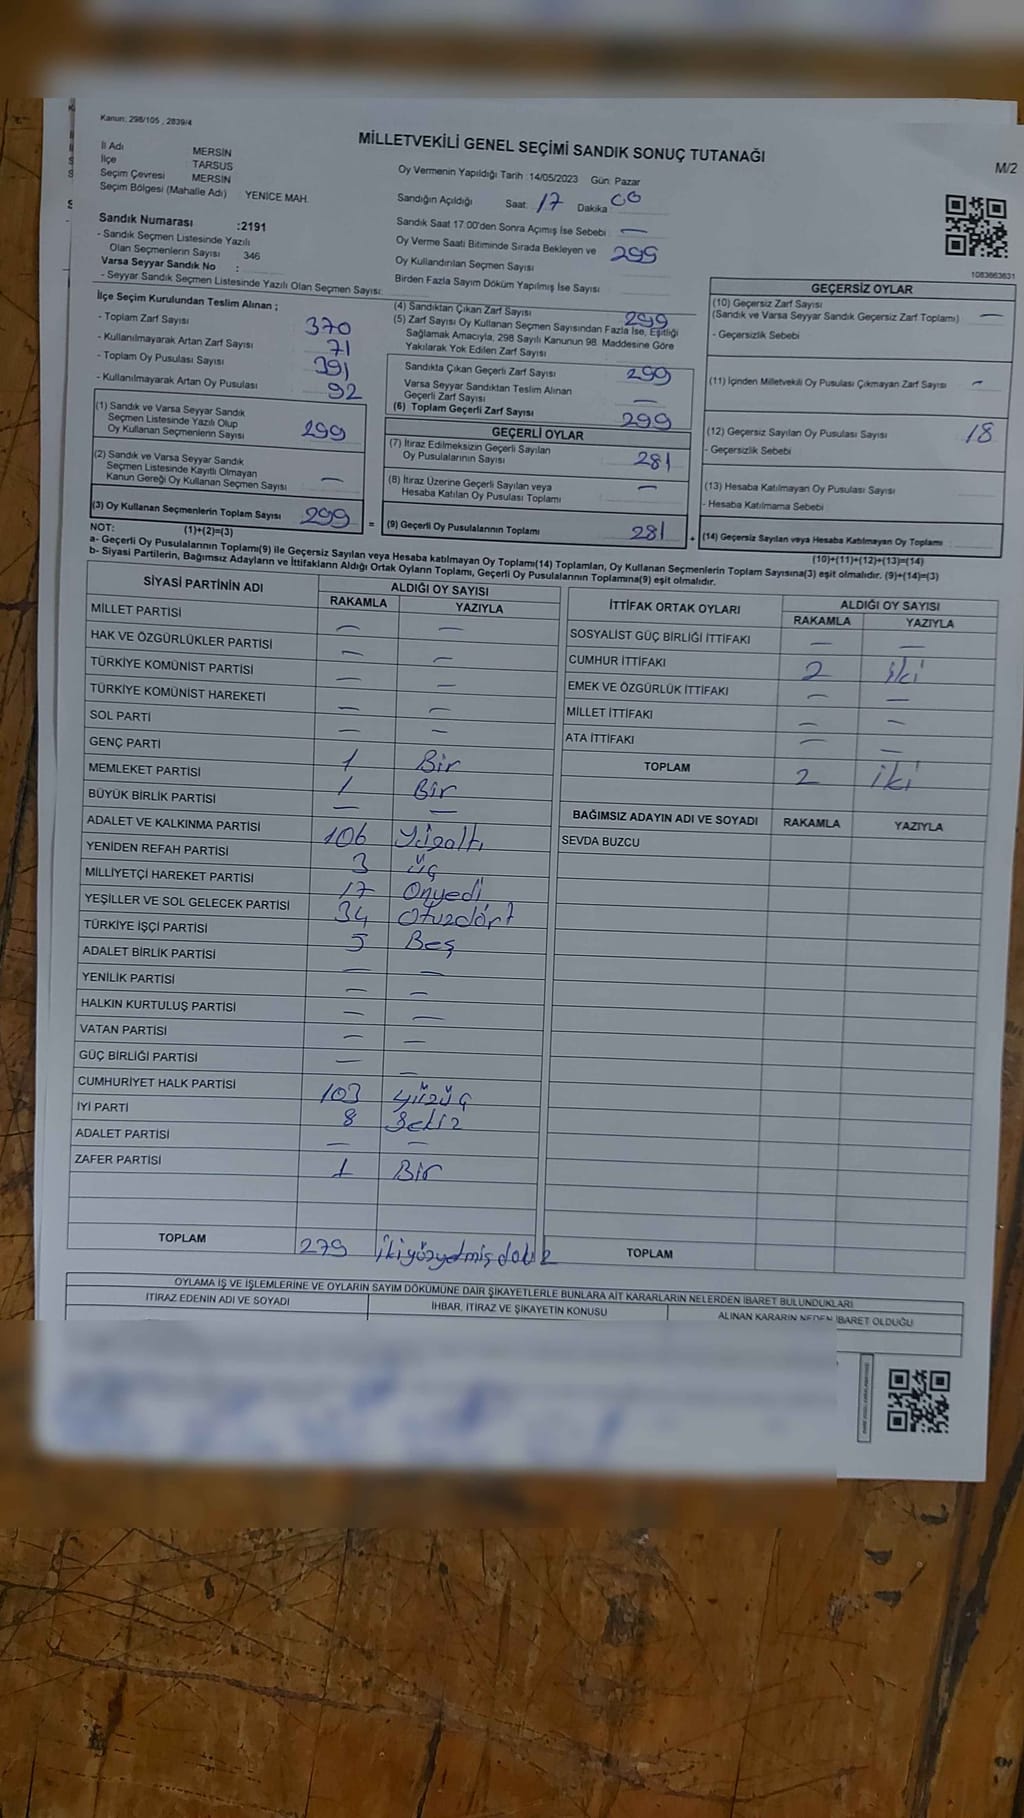 Kanun: 298/105 , 2839/4
MİLLETVEKİLİ GENEL SEÇİMİ SANDIK SONUÇ TUTANAĞI
M/2
İl Adı MERSİN
İlçe TARSUS
Seçim Çevresi MERSİN
Seçim Bölgesi (Mahalle Adı) YENİCE MAH.
Oy Vermenin Yapıldığı Tarih :14/05/2023 Gün: Pazar
Sandığın Açıldığı Saat: 17 Dakika 00
Sandık Saat 17.00'den Sonra Açılmış İse Sebebi : —
Oy Verme Saati Bitiminde Sırada Bekleyen ve
Oy Kullandırılan Seçmen Sayısı 299
Birden Fazla Sayım Döküm Yapılmış İse Sayısı
1083863631
Sandık Numarası :2191
- Sandık Seçmen Listesinde Yazılı
Olan Seçmenlerin Sayısı 346
Varsa Seyyar Sandık No :
- Seyyar Sandık Seçmen Listesinde Yazılı Olan Seçmen Sayısı:
İlçe Seçim Kurulundan Teslim Alınan ;
- Toplam Zarf Sayısı 370
- Kullanılmayarak Artan Zarf Sayısı 71
- Toplam Oy Pusulası Sayısı 391
- Kullanılmayarak Artan Oy Pusulası 92
(1) Sandık ve Varsa Seyyar Sandık
Seçmen Listesinde Yazılı Olup
Oy Kullanan Seçmenlerin Sayısı 299
(2) Sandık ve Varsa Seyyar Sandık
Seçmen Listesinde Kayıtlı Olmayan
Kanun Gereği Oy Kullanan Seçmen Sayısı —
(3) Oy Kullanan Seçmenlerin Toplam Sayısı 299
(1)+(2)=(3)
(4) Sandıktan Çıkan Zarf Sayısı 299
(5) Zarf Sayısı Oy Kullanan Seçmen Sayısından Fazla İse, Eşitliği
Sağlamak Amacıyla, 298 Sayılı Kanunun 98. Maddesine Göre
Yakılarak Yok Edilen Zarf Sayısı
Sandıkta Çıkan Geçerli Zarf Sayısı 299
Varsa Seyyar Sandıktan Teslim Alınan
Geçerli Zarf Sayısı —
(6) Toplam Geçerli Zarf Sayısı 299
GEÇERLİ OYLAR
(7) İtiraz Edilmeksizin Geçerli Sayılan
Oy Pusulalarının Sayısı 281
(8) İtiraz Üzerine Geçerli Sayılan veya
Hesaba Katılan Oy Pusulası Toplamı —
= (9) Geçerli Oy Pusulalarının Toplamı 281
GEÇERSİZ OYLAR
(10) Geçersiz Zarf Sayısı
(Sandık ve Varsa Seyyar Sandık Geçersiz Zarf Toplamı) —
- Geçersizlik Sebebi
(11) İçinden Milletvekili Oy Pusulası Çıkmayan Zarf Sayısı -
(12) Geçersiz Sayılan Oy Pusulası Sayısı 18
- Geçersizlik Sebebi
(13) Hesaba Katılmayan Oy Pusulası Sayısı
- Hesaba Katılmama Sebebi
+ (14) Geçersiz Sayılan veya Hesaba Katılmayan Oy Toplamı
(10)+(11)+(12)+(13)=(14)
NOT:
a- Geçerli Oy Pusulalarının Toplamı(9) ile Geçersiz Sayılan veya Hesaba katılmayan Oy Toplamı(14) Toplamları, Oy Kullanan Seçmenlerin Toplam Sayısına(3) eşit olmalıdır. (9)+(14)=(3)
b- Siyasi Partilerin, Bağımsız Adayların ve İttifakların Aldığı Ortak Oyların Toplamı, Geçerli Oy Pusulalarının Toplamına(9) eşit olmalıdır.
SİYASİ PARTİNİN ADI ALDIĞI OY SAYISI
RAKAMLA YAZIYLA
MİLLET PARTİSİ — —
HAK VE ÖZGÜRLÜKLER PARTİSİ — —
TÜRKİYE KOMÜNİST PARTİSİ — —
TÜRKİYE KOMÜNİST HAREKETİ — —
SOL PARTİ — —
GENÇ PARTİ 1 Bir
MEMLEKET PARTİSİ 1 Bir
BÜYÜK BİRLİK PARTİSİ — —
ADALET VE KALKINMA PARTİSİ 106 Yüzaltı
YENİDEN REFAH PARTİSİ 3 üç
MİLLİYETÇİ HAREKET PARTİSİ 17 Onyedi
YEŞİLLER VE SOL GELECEK PARTİSİ 34 Otuzdört
TÜRKİYE İŞÇİ PARTİSİ 5 Beş
ADALET BİRLİK PARTİSİ — —
YENİLİK PARTİSİ — —
HALKIN KURTULUŞ PARTİSİ — —
VATAN PARTİSİ — —
GÜÇ BİRLİĞİ PARTİSİ — —
CUMHURİYET HALK PARTİSİ 103 yüzüç
İYİ PARTİ 8 Sekiz
ADALET PARTİSİ — —
ZAFER PARTİSİ 1 Bir
TOPLAM 279 ikiyüzyetmişdokuz
İTTİFAK ORTAK OYLARI ALDIĞI OY SAYISI
RAKAMLA YAZIYLA
SOSYALİST GÜÇ BİRLİĞİ İTTİFAKI — —
CUMHUR İTTİFAKI 2 iki
EMEK VE ÖZGÜRLÜK İTTİFAKI — —
MİLLET İTTİFAKI — —
ATA İTTİFAKI — —
TOPLAM 2 iki
BAĞIMSIZ ADAYIN ADI VE SOYADI RAKAMLA YAZIYLA
SEVDA BUZCU
TOPLAM
OYLAMA İŞ VE İŞLEMLERİNE VE OYLARIN SAYIM DÖKÜMÜNE DAİR ŞİKAYETLERLE BUNLARA AİT KARARLARIN NELERDEN İBARET BULUNDUKLARI
İTİRAZ EDENİN ADI VE SOYADI İHBAR, İTİRAZ VE ŞİKAYETİN KONUSU ALINAN KARARIN NEDEN İBARET OLDUĞU